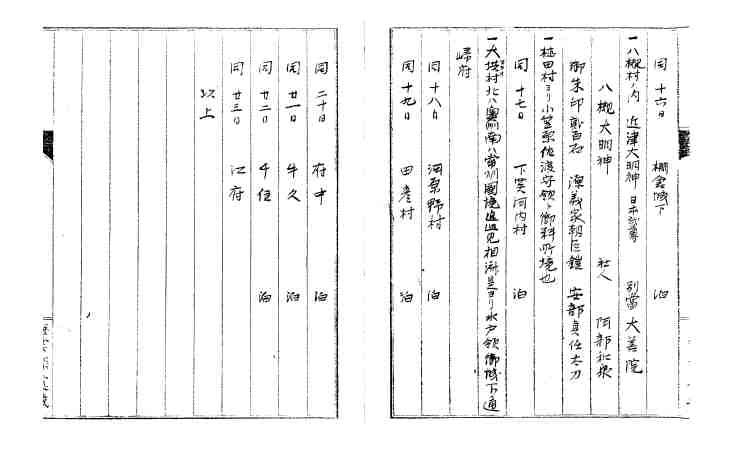 同 十六日 棚倉城下 泊
一八槻村ノ内 近津大明神 日本武尊 別當 大善院
八槻大明神 社人 阿部和泉
御朱印貳百石 源義家朝臣鎧 安部貞任太刀
一植田村ヨリ小笠原佐渡守領ト御料所境也
同 十七日 下関河内村 泊
一大垬村北ハ奥州南ハ常州國境迄巡見相済是ヨリ水戸領御城下通
帰府
同十八日 河原野村 泊
同十九日 田彦村 泊
同 二十日 府中 泊
同 廿一日 牛久 泊
同 廿二日 千住 泊
同 廿三日 江府
以上